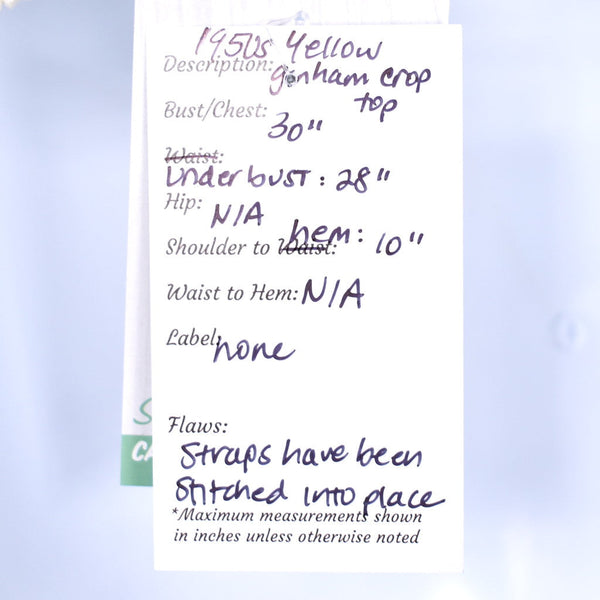 1950s Yellow
Description: ginham crop
top
Bust/Chest: 30"
Waist:
Underbust: 28"
Hip: N/A
Shoulder to Waist: hem: 10"
Waist to Hem: N/A
Label: none
Flaws:
Straps have been
Stitched into place
*Maximum measurements shown
in inches unless otherwise noted